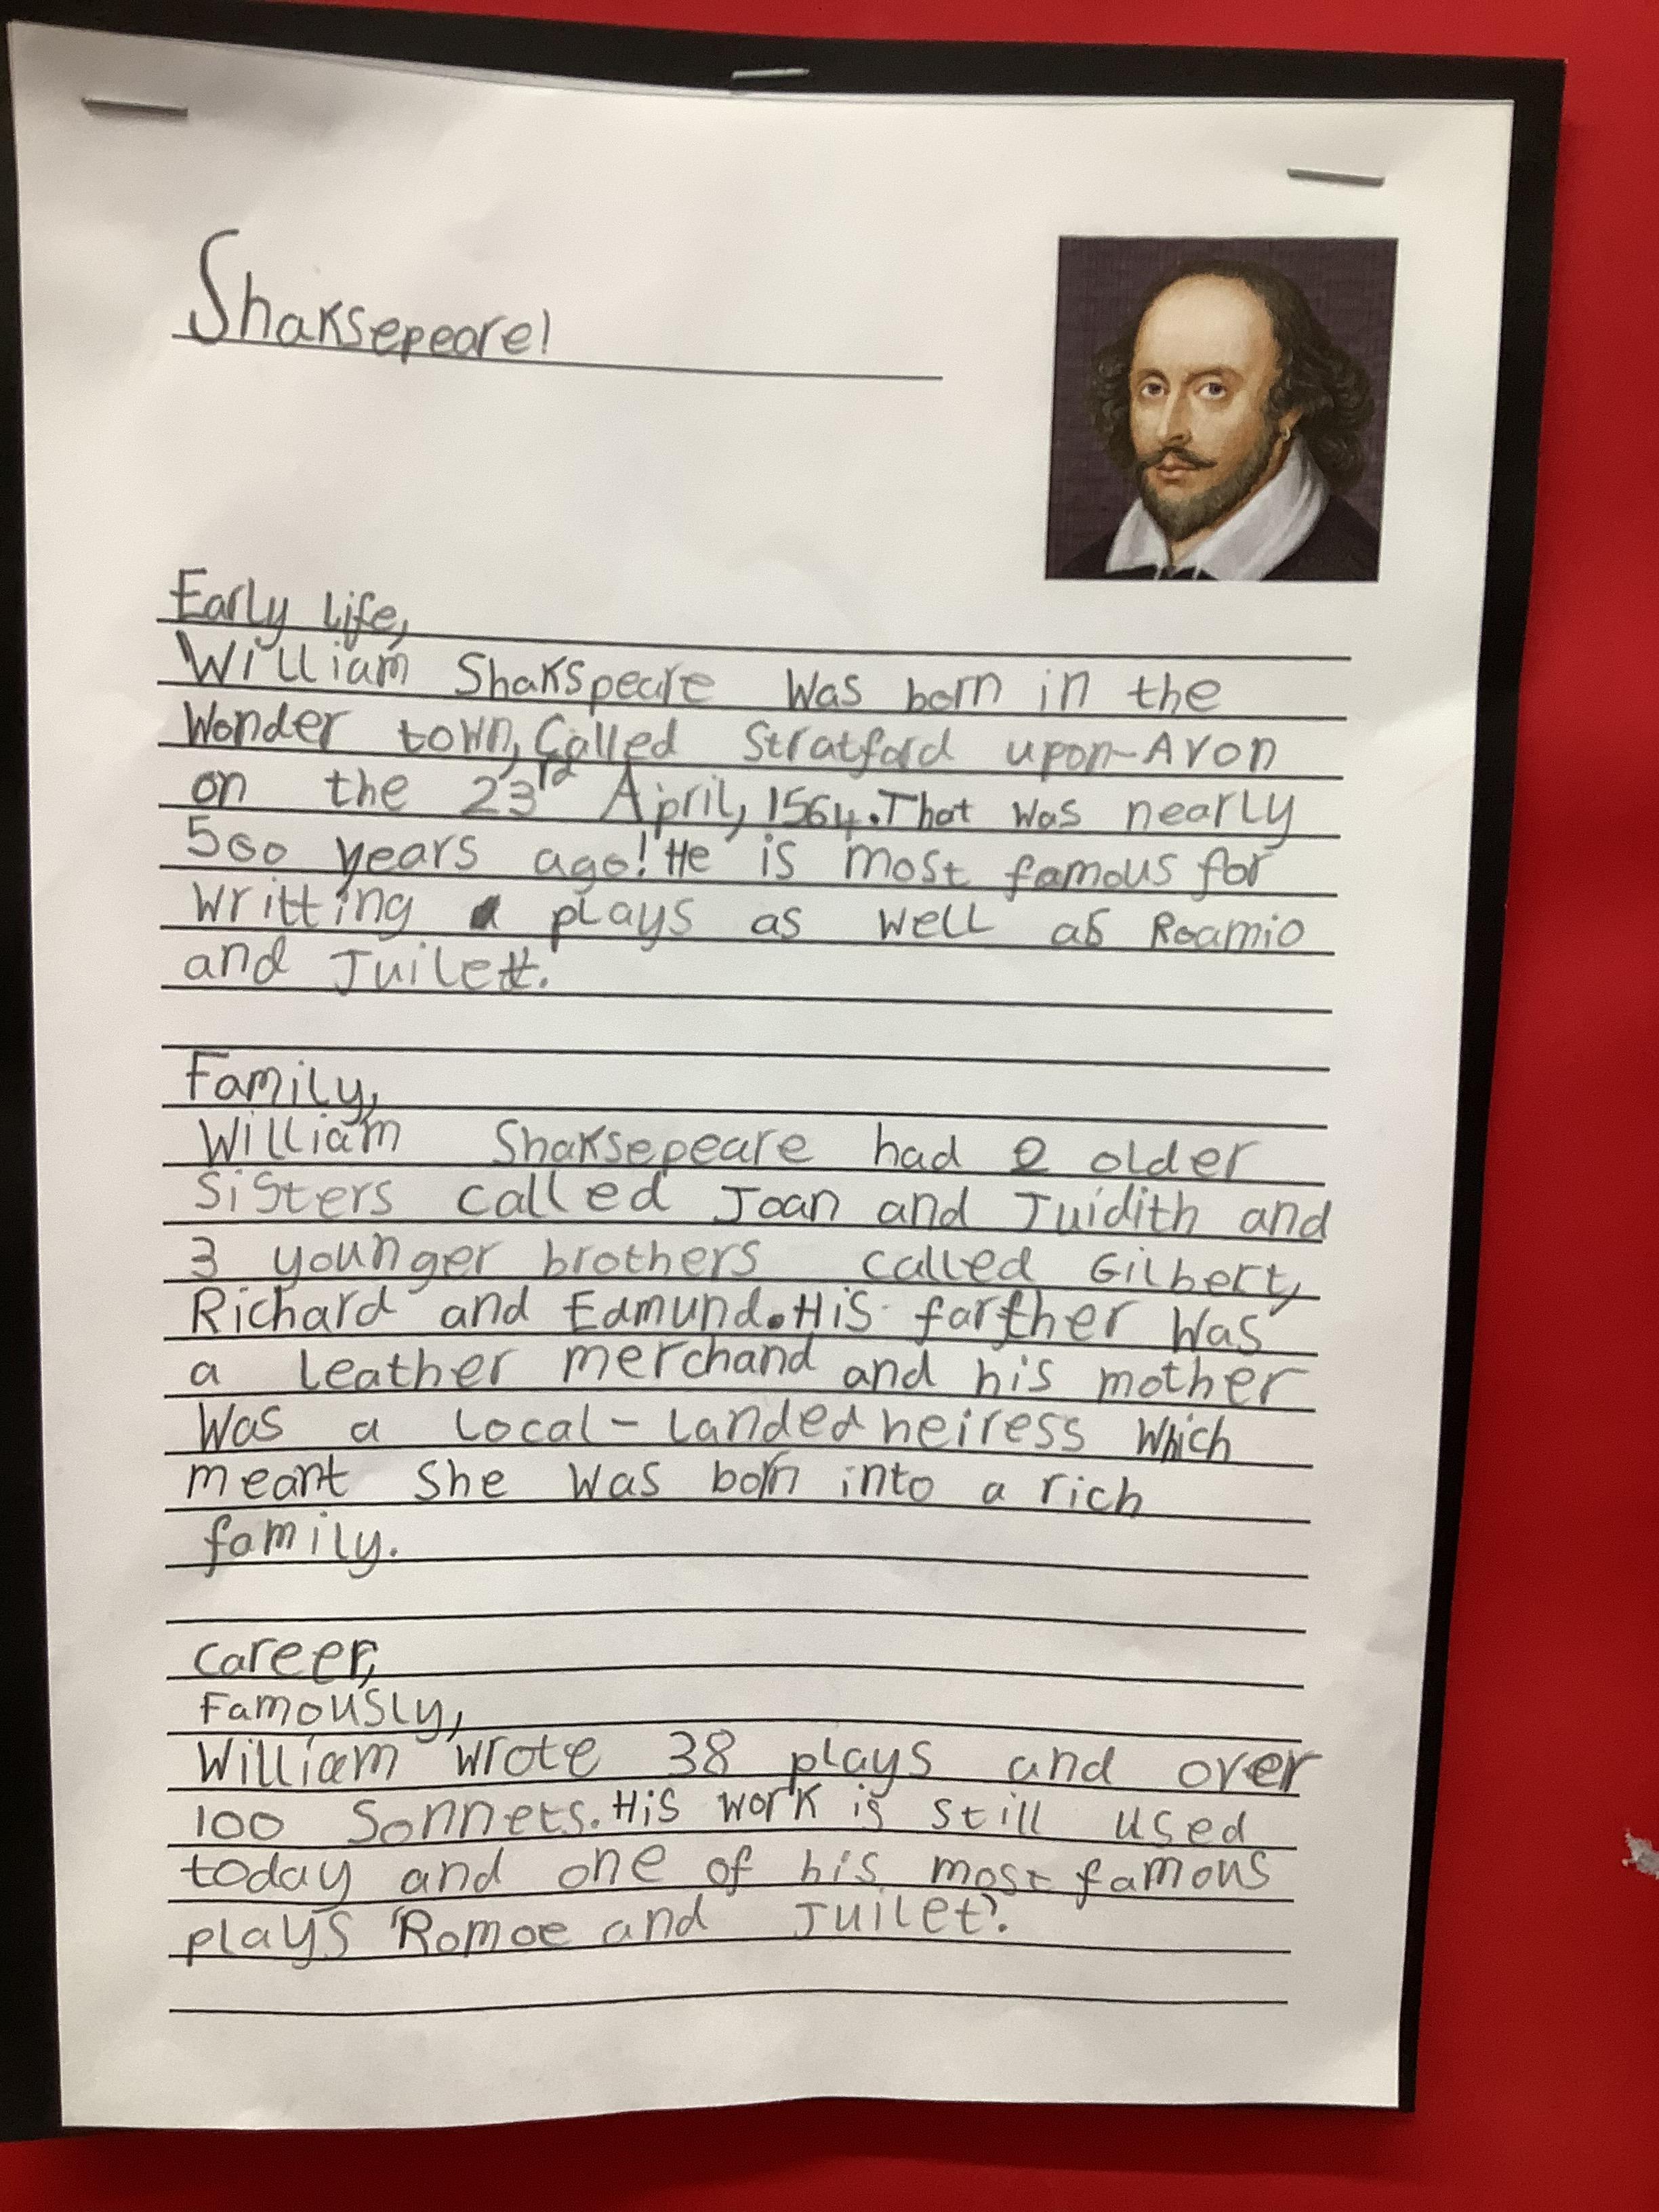 Shaksepeare!
Early life,
William Shakspeare was born in the
Wonder town, Called Stratford upon-Avon
on the 23rd April, 1564. That was nearly
500 years ago! He is most famous for
writting a plays as well as Roamio
and Juilett.
Family,
William Shaksepeare had 2 older
sisters called Joan and Juidith and
3 younger brothers called Gilbert,
Richard and Edmund. His farther was
a leather merchand and his mother
was a local-landed heiress which
meant she was born into a rich
family.
career,
Famously,
William wrote 38 plays and over
100 Sonnets. His work is still used
today and one of his most famous
plays 'Romoe and Juilet'.